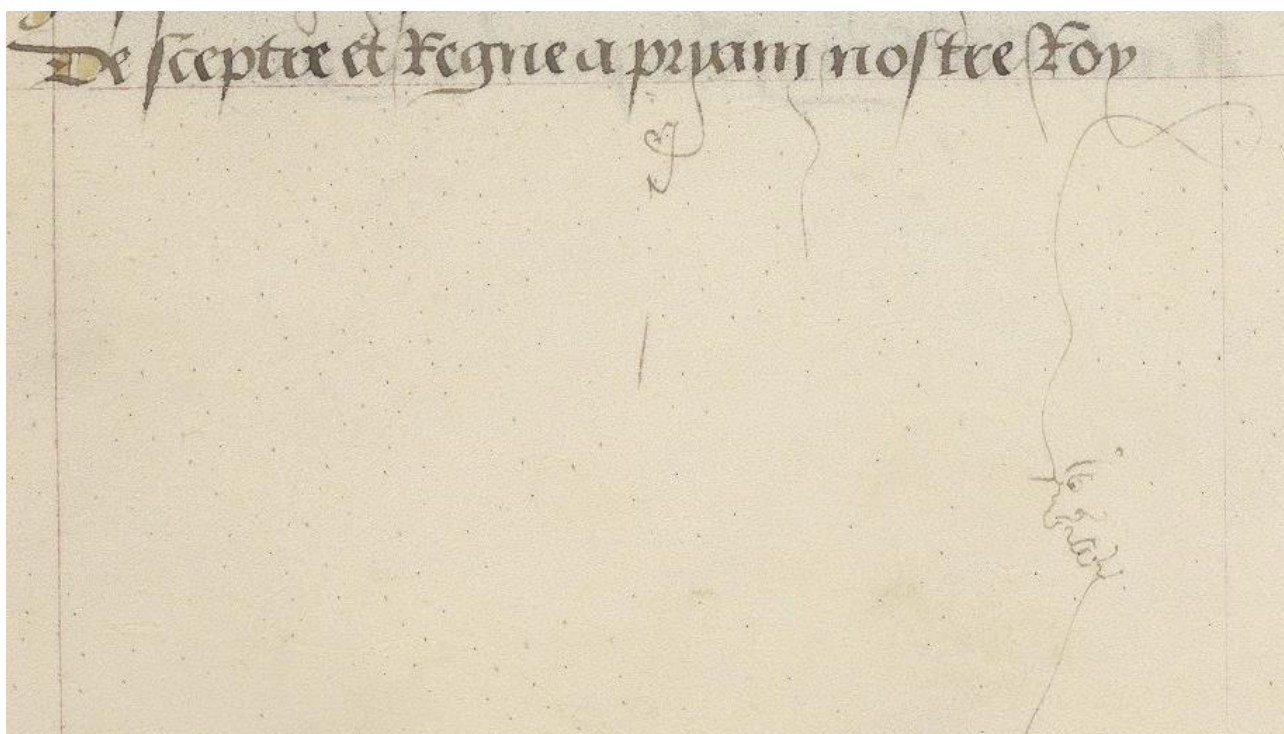 De sceptre et Regne a pryam nostre Roy